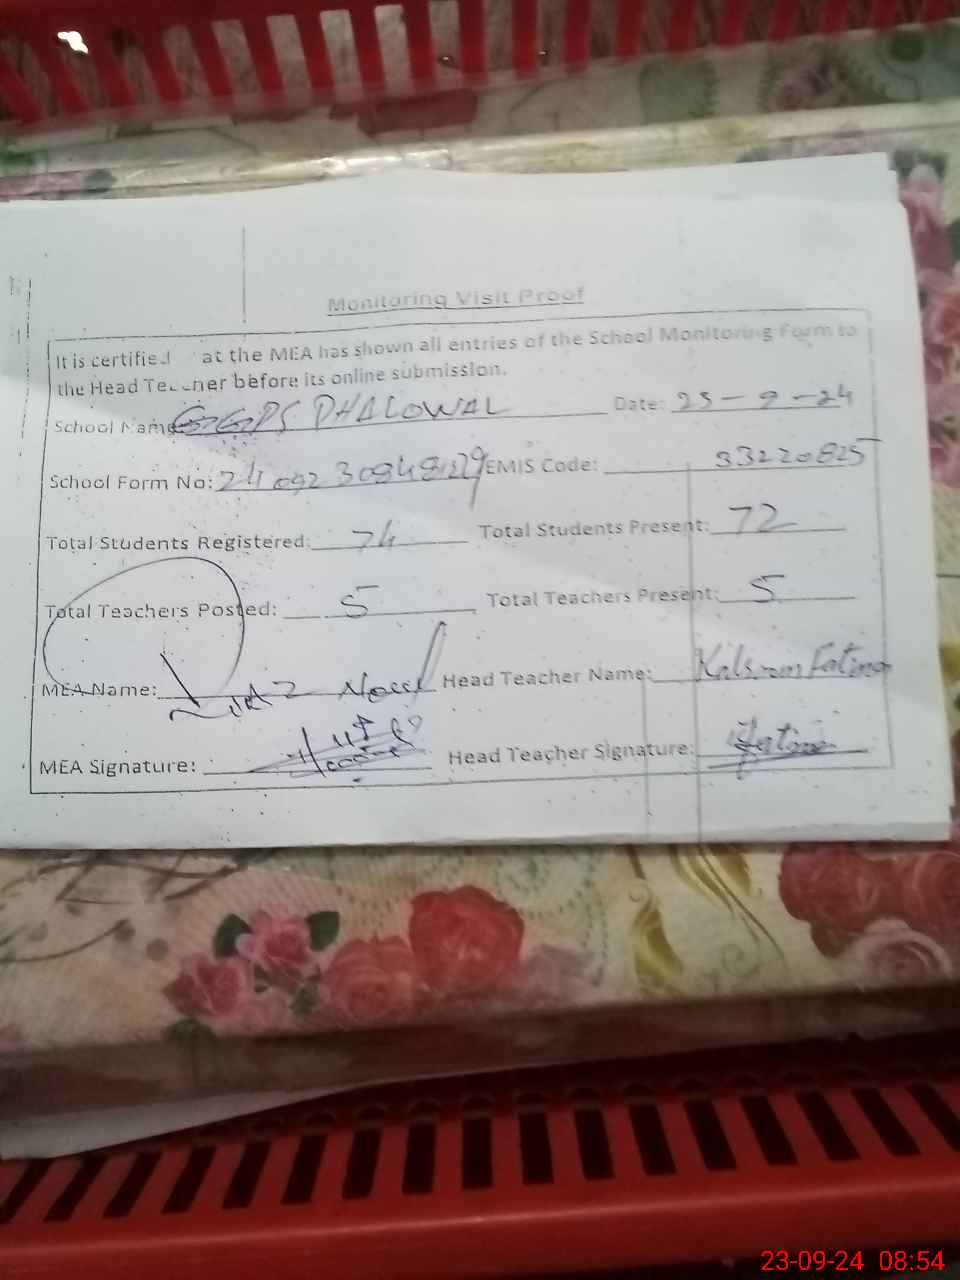 Monitoring Visit Proof
It is certified at the MEA has shown all entries of the School Monitoring Form to
the Head Teacher before its online submission.
School Name GGPS DHALOWAL Date: 23-9-24
School Form No: EMIS Code: 33220825
Total Students Registered: 74 Total Students Present: 72
Total Teachers Posted: 5 Total Teachers Present: 5
MEA Name: Head Teacher Name: Fatima
MEA Signature: Head Teacher Signature: Fatima
23-09-24 08:54